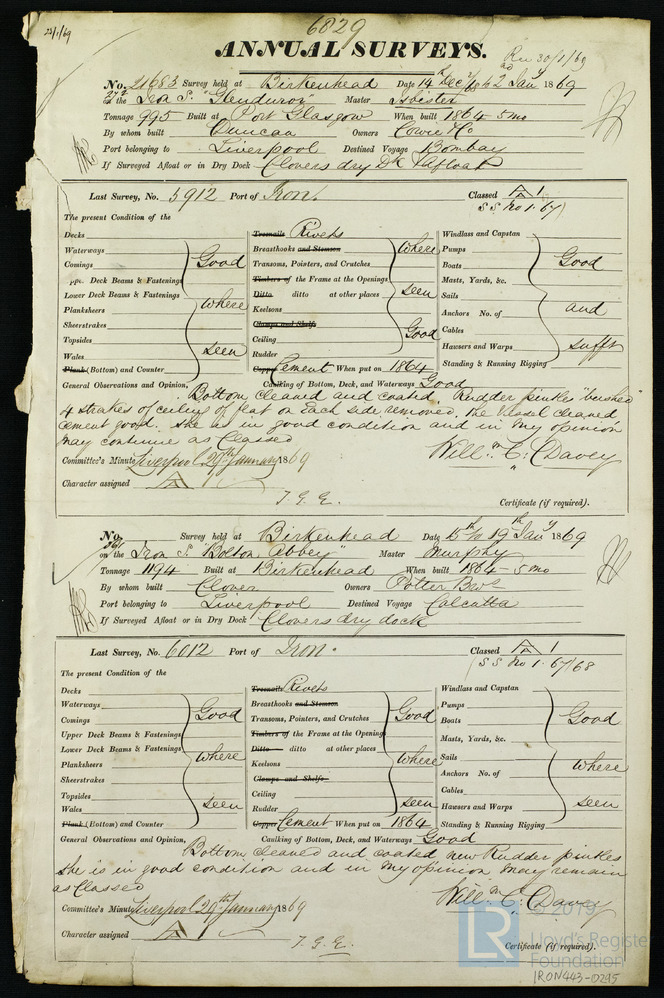 23/1/69
6829
ANNUAL SURVEYS.
Rec 30/1/69
No. 21683 Survey held at Birkenhead Date 14th Decr to 2nd Jany 1869
on the Iron S. "Glenduror" Master
Tonnage 995 Built at Port Glasgow When built 1864 5 mo
By whom built Duncan Owners Cowie & Co
Port belonging to Liverpool Destined Voyage Bombay
If Surveyed Afloat or in Dry Dock Clovers dry Dk & afloat
Last Survey, No. 5912 Port of Iron. Classed A 1
SS No 1. 67
The present Condition of the
Decks
Waterways
Comings
Upper Deck Beams & Fastenings
Lower Deck Beams & Fastenings
Planksheers
Sheerstrakes
Topsides
Wales
Plank (Bottom) and Counter
Good
where
seen
Treenails Rivets
Breasthooks and Stemson
Transoms, Pointers, and Crutches
Timbers of the Frame at the Openings
Ditto ditto at other places
Keelsons
Clamps and Shelfs
Ceiling
Rudder
Copper Cement When put on 1864
where
seen
Good
Windlass and Capstan
Pumps
Boats
Masts, Yards, &c.
Sails
Anchors No. of
Cables
Hawsers and Warps
Standing & Running Rigging
Good
and
sufft
General Observations and Opinion, Caulking of Bottom, Deck, and Waterways Good
Bottom cleaned and coated. Rudder pintles "bushed"
4 strakes of ceiling of flat on Each side removed. the Vessel cleaned
Cement good. she is in good condition and in my opinion
may continue as Classed
Willm. C. Davey
Committee's Minute Liverpool 29th January 1869
Character assigned A
T.G.G.
Certificate (if required).
No. Survey held at Birkenhead Date 15th to 19th Jany 1869
on the Iron S. "Bolton Abbey" Master Murphy
Tonnage 1194 Built at Birkenhead When built 1864 - 5 mo
By whom built Clover Owners Potter Bros
Port belonging to Liverpool Destined Voyage Calcutta
If Surveyed Afloat or in Dry Dock Clovers dry dock
Last Survey, No. 6012 Port of Iron. Classed A 1
(SS No 1. 67/68
The present Condition of the
Decks
Waterways
Comings
Upper Deck Beams & Fastenings
Lower Deck Beams & Fastenings
Planksheers
Sheerstrakes
Topsides
Wales
Plank (Bottom) and Counter
Good
where
seen
Treenails Rivets
Breasthooks and Stemson
Transoms, Pointers, and Crutches
Timbers of the Frame at the Openings
Ditto ditto at other places
Keelsons
Clamps and Shelfs
Ceiling
Rudder
Copper Cement When put on 1864
Good
where
seen
Windlass and Capstan
Pumps
Boats
Masts, Yards, &c.
Sails
Anchors No. of
Cables
Hawsers and Warps
Standing & Running Rigging
Good
where
seen
General Observations and Opinion, Caulking of Bottom, Deck, and Waterways Good
Bottom cleaned and coated new Rudder pintles
she is in good condition and in my opinion may remain
as Classed
Willm. C. Davey
Committee's Minute Liverpool 29th January 1869
Character assigned A
T.G.G.
Certificate (if required).
LR
© 2019
Lloyd's Register
Foundation
IRON443-0295